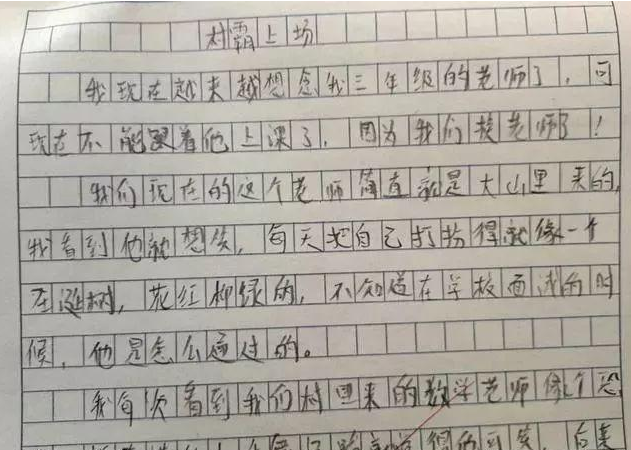 村霸上场
我现在越来越想念我三年级的老师了，可
现在不能跟着他上课了，因为我们换老师了！
我们现在的这个老师简直就是大山里来的，
我看到他就想笑，每天把自己打扮得就像一个
圣诞树，花红柳绿的，不知道在学校面试的时
候，他是怎么通过的。
我每次看到我们村里来的数学老师像个恐
得的可笑，后来